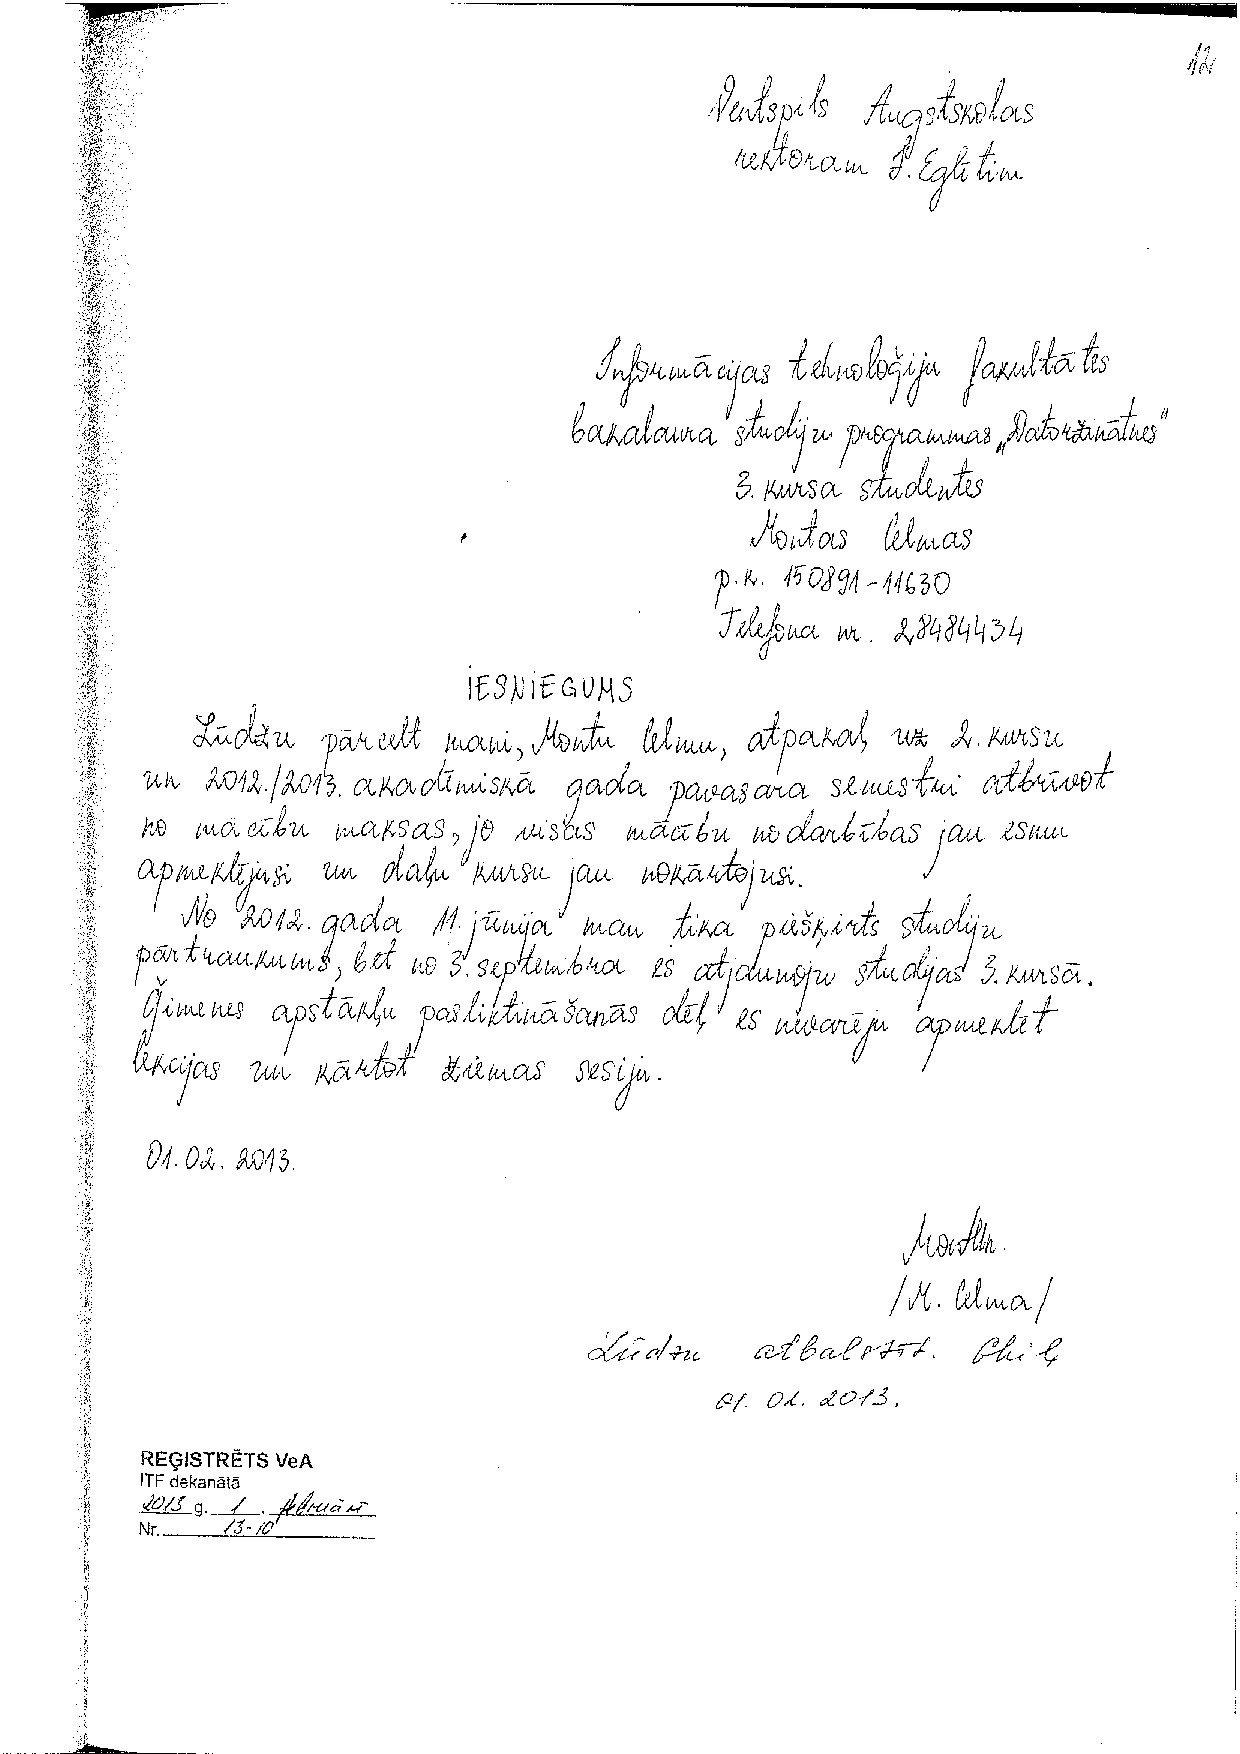 12
Ventspils Augstskolas
rektoram J. Eglītim
Informācijas tehnoloģiju fakultātes
bakalaura studiju programmas „Datorzinātnes"
3. kursa studentes
Montas Celmas
p.k. 150891-11630
Telefona nr. 28484434
IESNIEGUMS
Lūdzu pārcelt mani, Montu Celmu, atpakaļ uz 2. kursu
un 2012./2013. akadēmiskā gada pavasara semestrī atbrīvot
no mācību maksas, jo visas mācību nodarbības jau esmu
apmeklējusi un daļu kursu jau nokārtojusi.
No 2012. gada 11. jūnija man tika piešķirts studiju
pārtraukums, bet no 3. septembra es atjaunoju studijas 3. kursā.
Ģimenes apstākļu pasliktināšanās dēļ es nevarēju apmeklēt
lekcijas un kārtot ziemas sesiju.
01.02.2013.
/M. Celma/
Lūdzu atbalstīt.
01.02.2013.
REĢISTRĒTS VeA
ITF dekanātā
2013 g. 1. februārī
Nr. 13-10